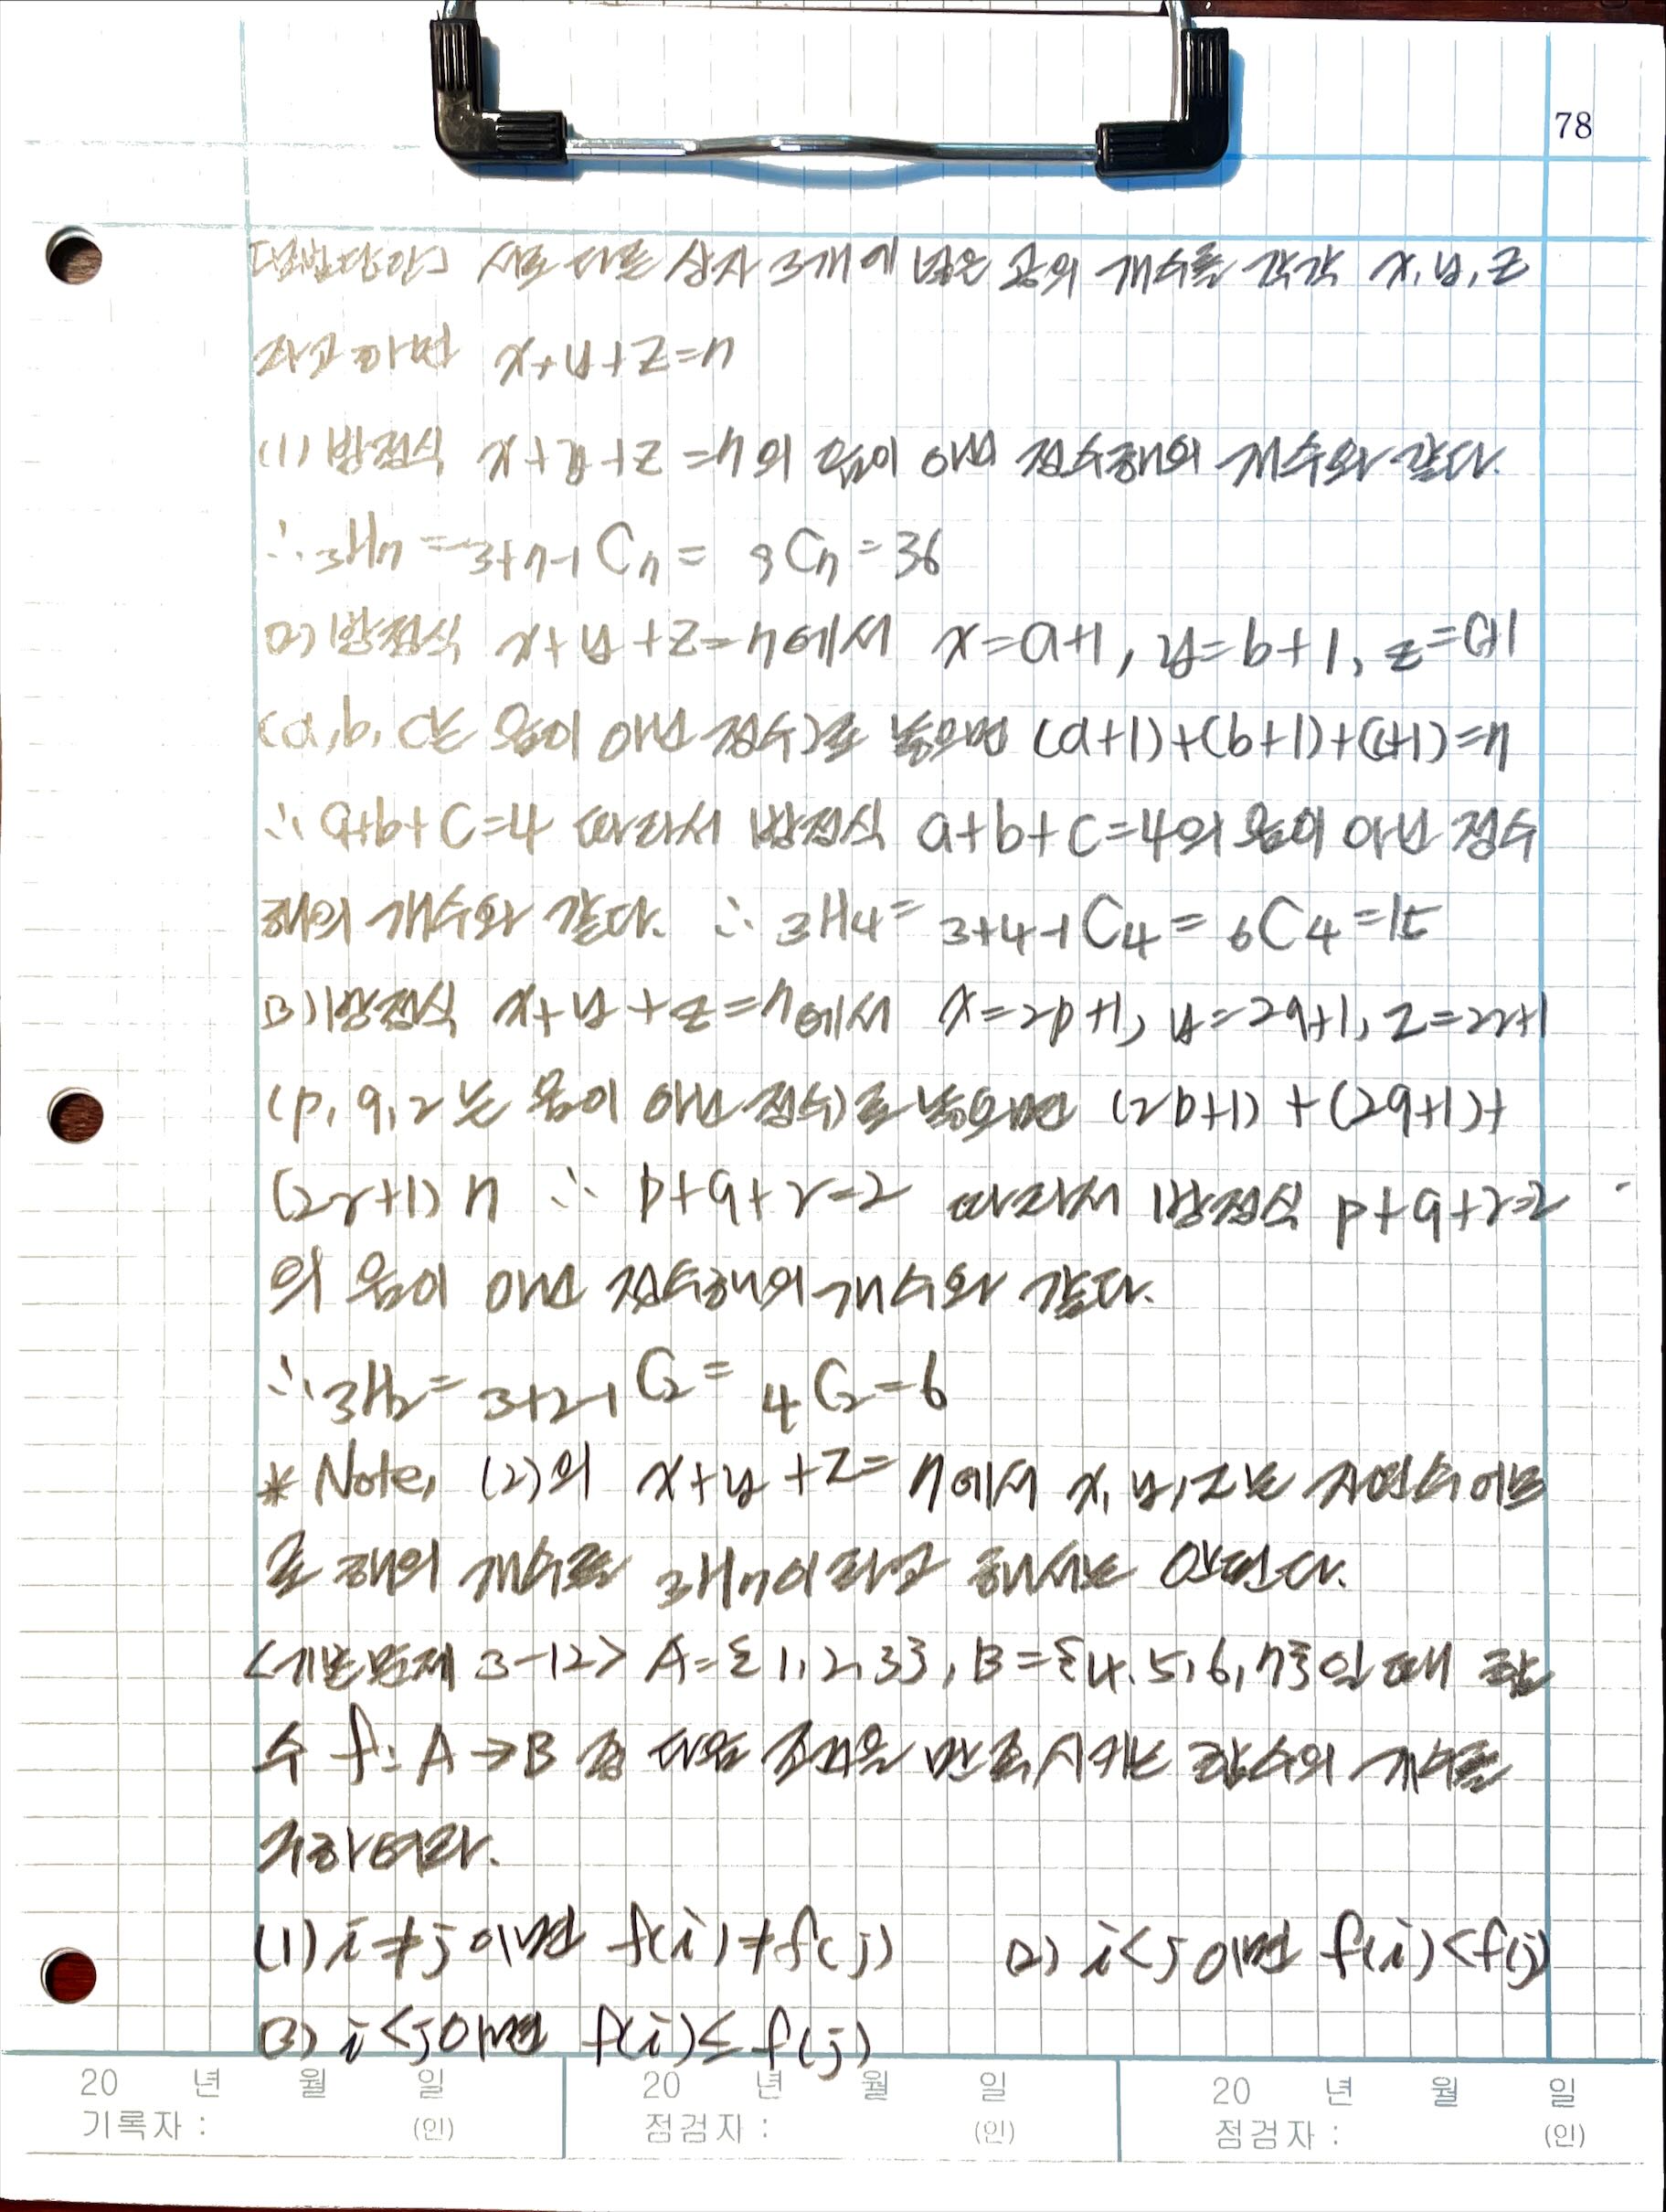 78
[모범답안] 서로 다른 상자 3개에 넣은 공의 개수를 각각 x, y, z
라고 하면 x+y+z=7
(1) 방정식 x+y+z=7의 음이 아닌 정수해의 개수와 같다.
∴ ₃H₇ = ₃₊₇₋₁C₇ = ₉C₇ = 36
(2) 방정식 x+y+z=7에서 x=a+1, y=b+1, z=c+1
(a, b, c는 음이 아닌 정수)로 놓으면 (a+1)+(b+1)+(c+1)=7
∴ a+b+c=4 따라서 방정식 a+b+c=4의 음이 아닌 정수
해의 개수와 같다. ∴ ₃H₄ = ₃₊₄₋₁C₄ = ₆C₄ = 15
(3) 방정식 x+y+z=7에서 x=2p+1, y=2q+1, z=2r+1
(p, q, r는 음이 아닌 정수)로 놓으면 (2p+1)+(2q+1)+
(2r+1) 7 ∴ p+q+r=2 따라서 방정식 p+q+r=2
의 음이 아닌 정수해의 개수와 같다.
∴ ₃H₂ = ₃₊₂₋₁C₂ = ₄C₂ = 6
* Note, (2)의 x+y+z=7에서 x, y, z는 자연수이므
로 해의 개수를 ₃H₇이라고 해서는 안된다.
<기본문제 3-12> A={1, 2, 3}, B={4, 5, 6, 7}일 때 함
수 f: A→B 중 다음 조건을 만족시키는 함수의 개수를
구하여라.
(1) i≠j이면 f(i)≠f(j) (2) i<j이면 f(i)<f(j)
(3) i<j이면 f(i)≤f(j)
20 년 월 일 20 년 월 일 20 년 월 일
기록자 : (인) 점검자 : (인) 점검자 : (인)